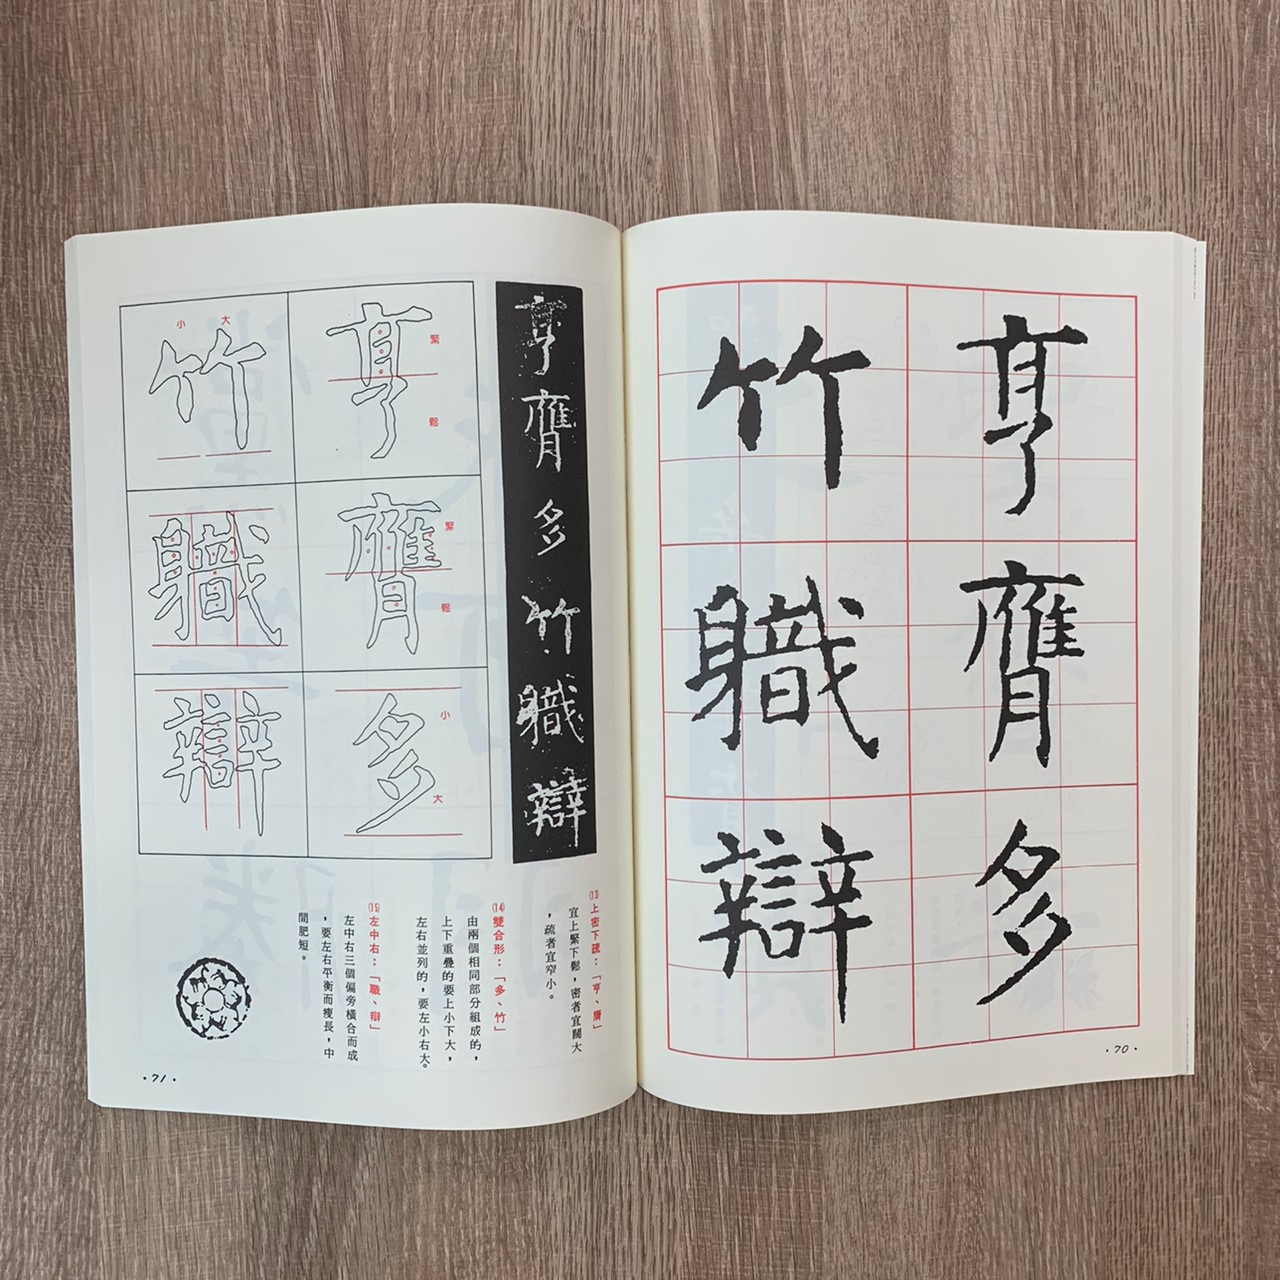 亨膺多
竹軄辯
·70·
亨膺多竹軄辯
亨
緊
鬆
膺
緊
鬆
多
小
大
竹
大
小
軄
辯
(13)上密下疏：「亨、膺」
宜上緊下鬆，密者宜闊大
，疏者宜窄小。
(14)雙合形：「多、竹」
由兩個相同部分組成的，
上下重疊的要上小下大，
左右並列的，要左小右大。
(15)左中右：「職、辯」
左中右三個偏旁橫合而成
，要左右平衡而瘦長，中
間肥短。
·71·